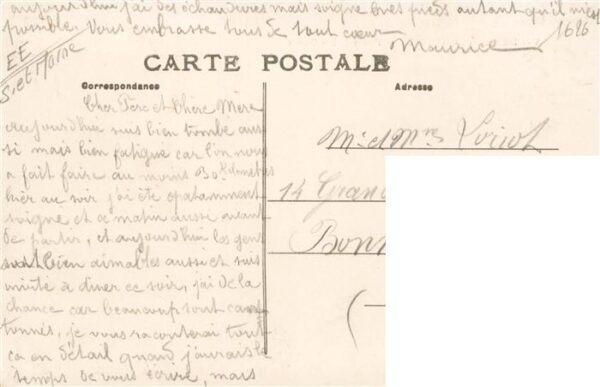 aujourd'hui j'ai des échaudures mais soigne mes pieds autant qu'il m'est
possible. Vous embrasse tous de tout cœur
Maurice
1696
EE
S. et Marne
CARTE POSTALE
Correspondance
Adresse
Cher Père et Chère Mère
Aujourd'hui suis bien tombé aus-
si mais bien fatigué car l'on nous
a fait faire au moins 30 kilomètres
hier au soir j'ai été épatamment
soigné et ce matin aussi avant
de partir, et aujourd'hui les gens
sont bien aimables aussi et suis
invité à diner ce soir, j'ai de la
chance car beaucoup sont can-
tonnés, je vous raconterai tout
ça en détail quand j'aurais le
temps de vous écrire, mais
M. et Mme Loriot
14 Grand
Bonn
(